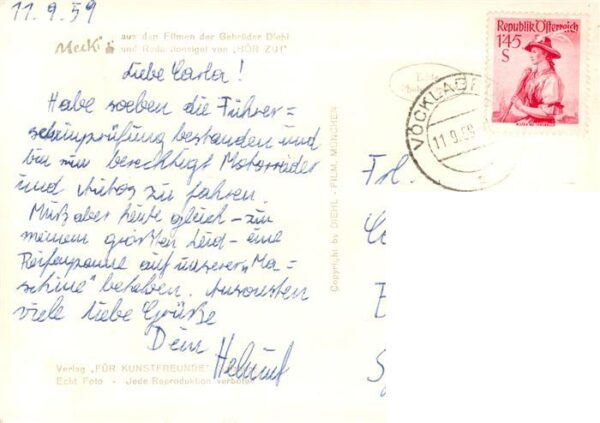 11.9.59
Mecki aus den Filmen der Gebrüder Diehl
und Redaktionsigel von „HÖR ZU!"
Liebe Carla!
Habe soeben die Führer=
scheinprüfung bestanden und
bin nun berechtigt Motorräder
und Autos zu fahren.
Muß aber heute gleich – zu
meinem größten Leid – eine
Reifenpanne auf unserer „Ma=
schine" beheben. Ansonsten
viele liebe Grüße
Dein Helmut
Verlag „FÜR KUNSTFREUNDE"
Echt Foto - Jede Reproduktion verboten
Copyright by DIEHL-FILM, MÜNCHEN
Republik Österreich
1'45
S
VÖCKLA
11.9.59
Frl.